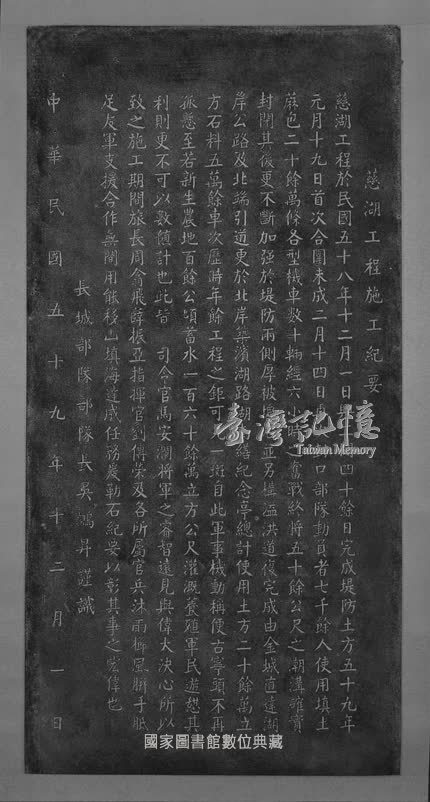 慈湖工程施工紀要
慈湖工程於民國五十八年十二月一日 四十餘日完成堤防土方五十九年
元月十九日首次合圍未成二月十四日 口部隊動員者七千餘人使用填土
蔴包二十餘萬條各型機車數十輛經六 奮戰終將五十餘公尺之潮溝確實
封閉其後更不斷加强於堤防兩側厚被 並另構溢洪道復完成由金城直達湖
岸公路及北端引道更於北岸築濱湖路 紀念亭總計使用土方二十餘萬立
方石料五萬餘車次歷時年餘工程之鉅可 一斑自此軍事機動稱便古寧頭不再
孤懸至若新生農地百餘公頃蓄水一百六十餘萬立方公尺灌溉養殖軍民遊憩其
利則更不可以數值計也此皆 司令官馬安瀾將軍之睿智遠見與偉大決心所以
致之施工期間旅長周 飛薛振亞指揮官劉傳榮及各所屬官兵沐雨櫛風胼手胝
足友軍支援合作無間用能移山填海達成任務爰勒石紀要以彰其事之宏偉也
長城部隊部隊長吳鴻昇謹識
中華民國五十九年十二月一日
臺灣記憶
Taiwan Memory
國家圖書館數位典藏